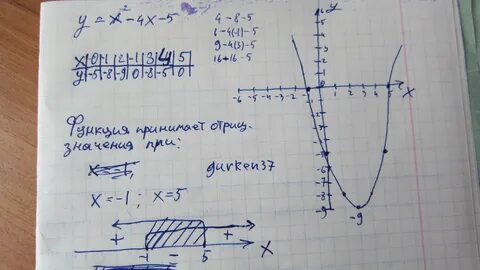 y = x² - 4x - 5
4 - 8 - 5
6 - 4(-1) - 5
9 - 4(3) - 5
16 + 16 - 5
x | 0 | 1 | 2 | -1 | 3 | 4 | 5
y | -5 | -8 | -9 | 0 | -8 | -5 | 0
Функция принимает отриц.
значения при:
gurken37
x = -1 ; x = 5
+ - +
-1 5 x
y
6
5
4
3
2
1
-6 -5 -4 -3 -2 -1 1 2 3 4 5 x
-9